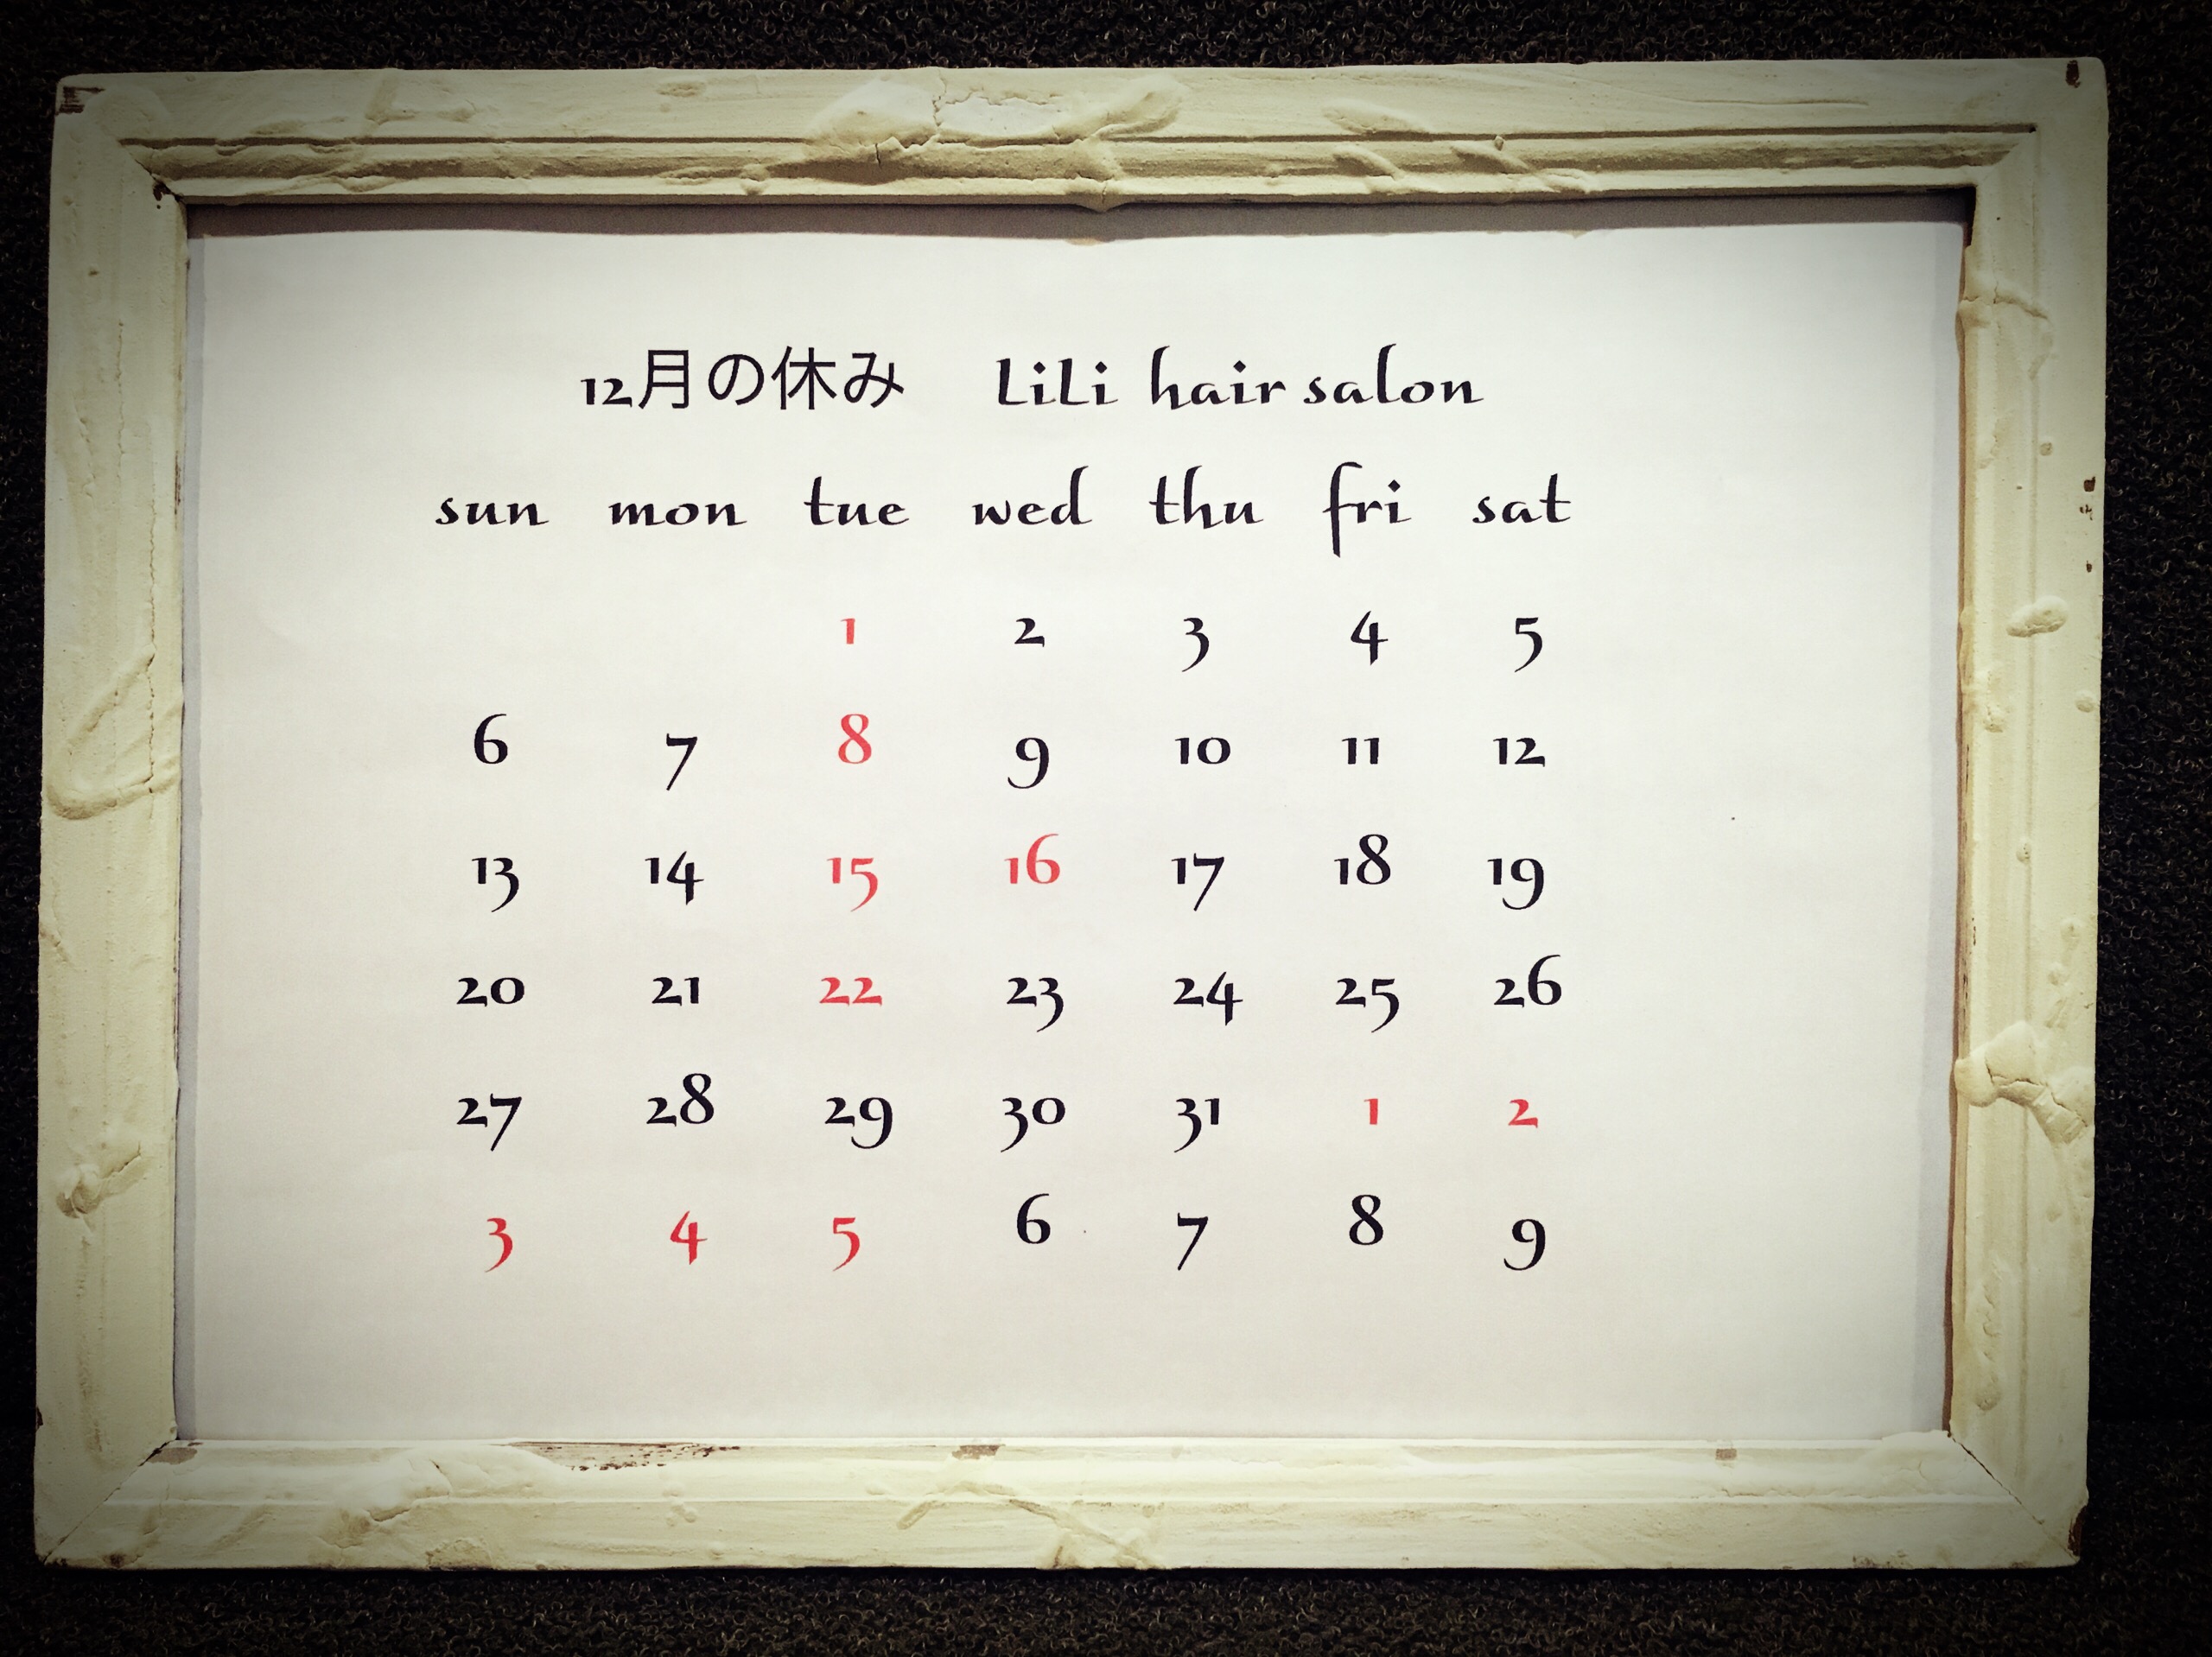 12月の休み LiLi hair salon
sun mon tue wed thu fri sat
1 2 3 4 5
6 7 8 9 10 11 12
13 14 15 16 17 18 19
20 21 22 23 24 25 26
27 28 29 30 31 1 2
3 4 5 6 7 8 9